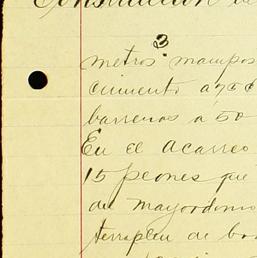 Construccion de
3
metros mampos
cimiento a 75 c
barrenos a 50
En el acarreo
15 peones que
du mayordomo
terraplen de bo